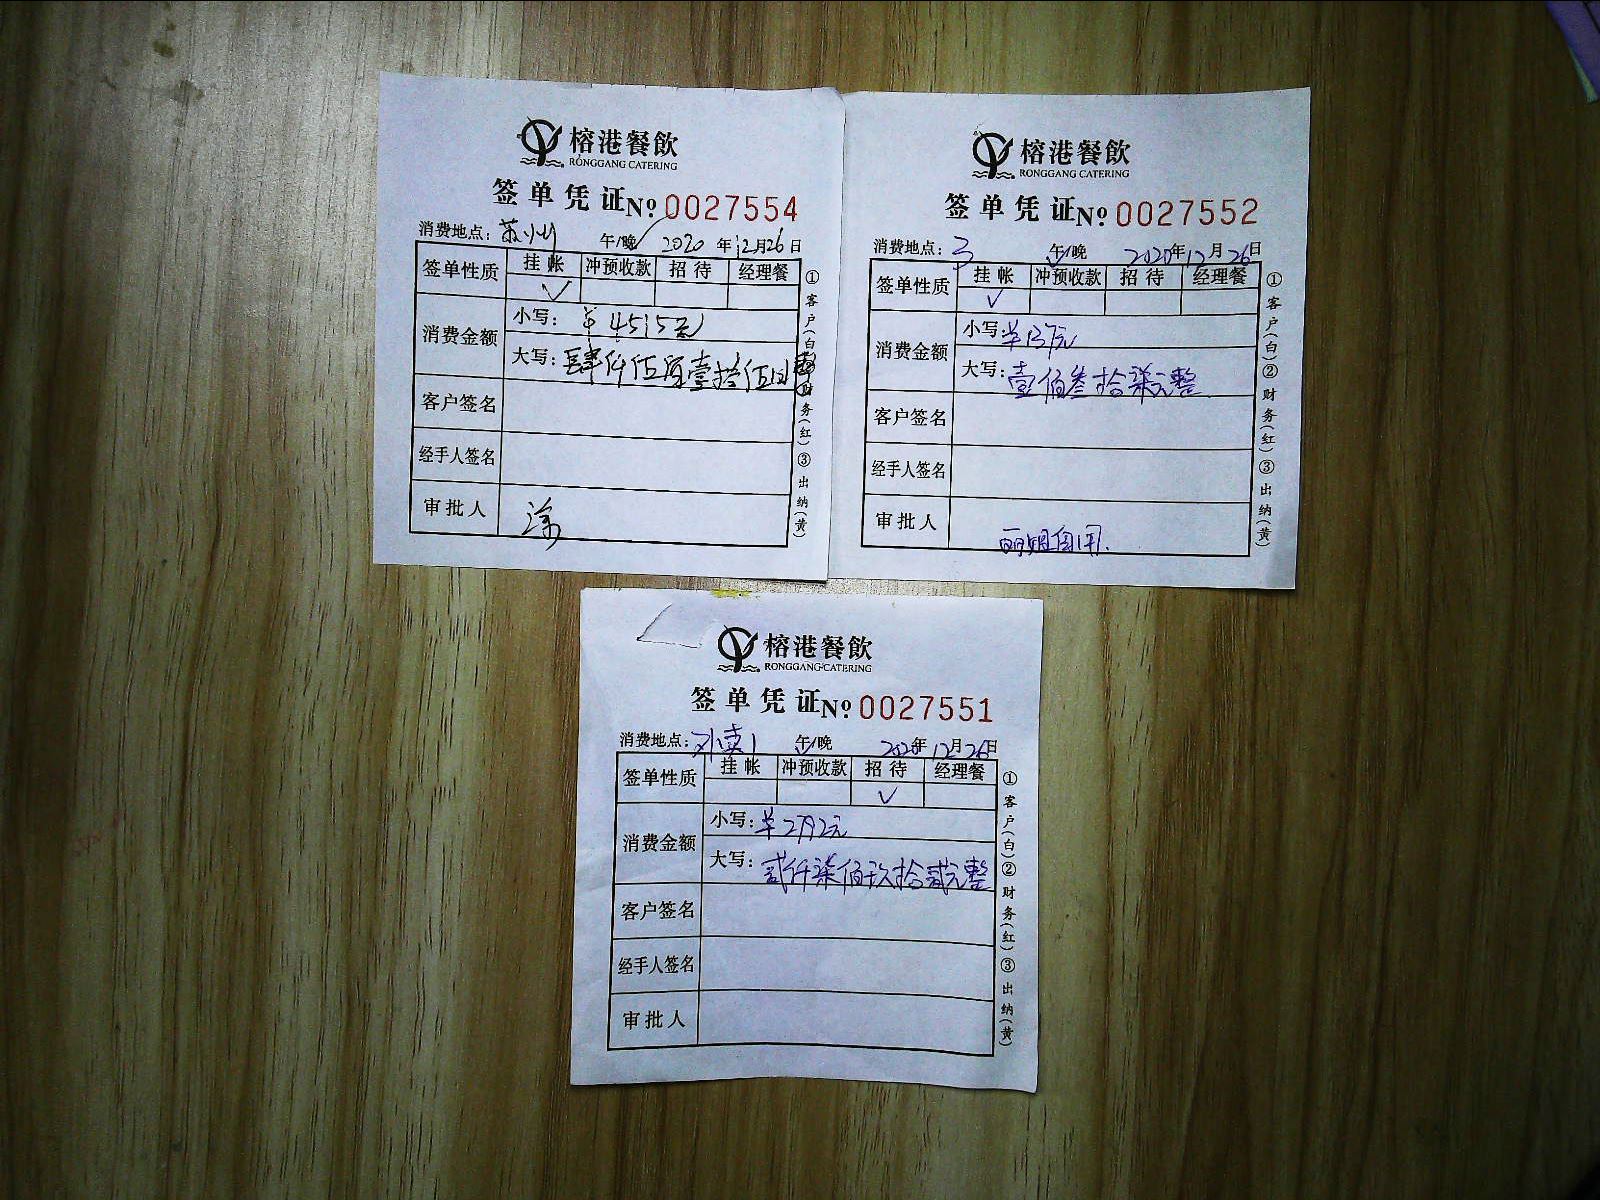 榕港餐飲
RONGGANG CATERING
签单凭证 No 0027554
消费地点：苏州 午/晚 2020年12月26日
签单性质 挂帐 冲预收款 招待 经理餐
消费金额 小写：¥4515元
大写：肆仟伍佰壹拾伍元整
客户签名
经手人签名
审批人 涂
①客户(白)②财务(红)③出纳(黄)
榕港餐飲
RONGGANG CATERING
签单凭证 No 0027552
消费地点： 午/晚 2020年12月26日
签单性质 挂帐 冲预收款 招待 经理餐
消费金额 小写：¥137元
大写：壹佰叁拾柒元整
客户签名
经手人签名
审批人 丽姐自用.
①客户(白)②财务(红)③出纳(黄)
榕港餐飲
RONGGANG CATERING
签单凭证 No 0027551
消费地点：外卖1 午/晚 2020年12月26日
签单性质 挂帐 冲预收款 招待 经理餐
消费金额 小写：¥2792元
大写：贰仟柒佰玖拾贰元整
客户签名
经手人签名
审批人
①客户(白)②财务(红)③出纳(黄)